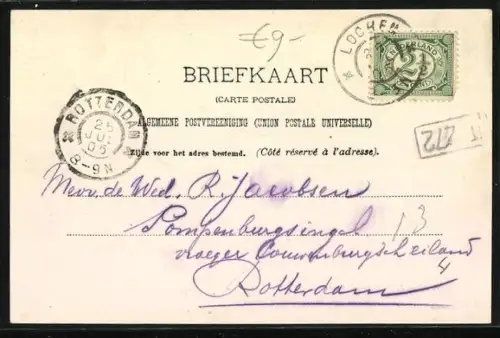 €9-
LOCHEM
NEDERLAND
2½
BRIEFKAART
(CARTE POSTALE)
ALGEMEENE POSTVEREENIGING (UNION POSTALE UNIVERSELLE)
Zijde voor het adres bestemd. (Côté réservé à l'adresse).
ROTTERDAM
25
JUL
06
8-9N
212
Mevr. de Wed. R. Jacobsen
Pompenburgsingel 13
vroeger Couwenburgseiland
4
Rotterdam